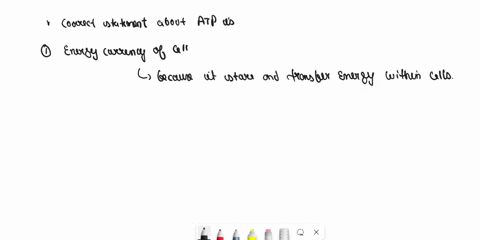 • Correct statement about ATP is
① Energy currency of cell
↳ because it store and transfer energy within cells.